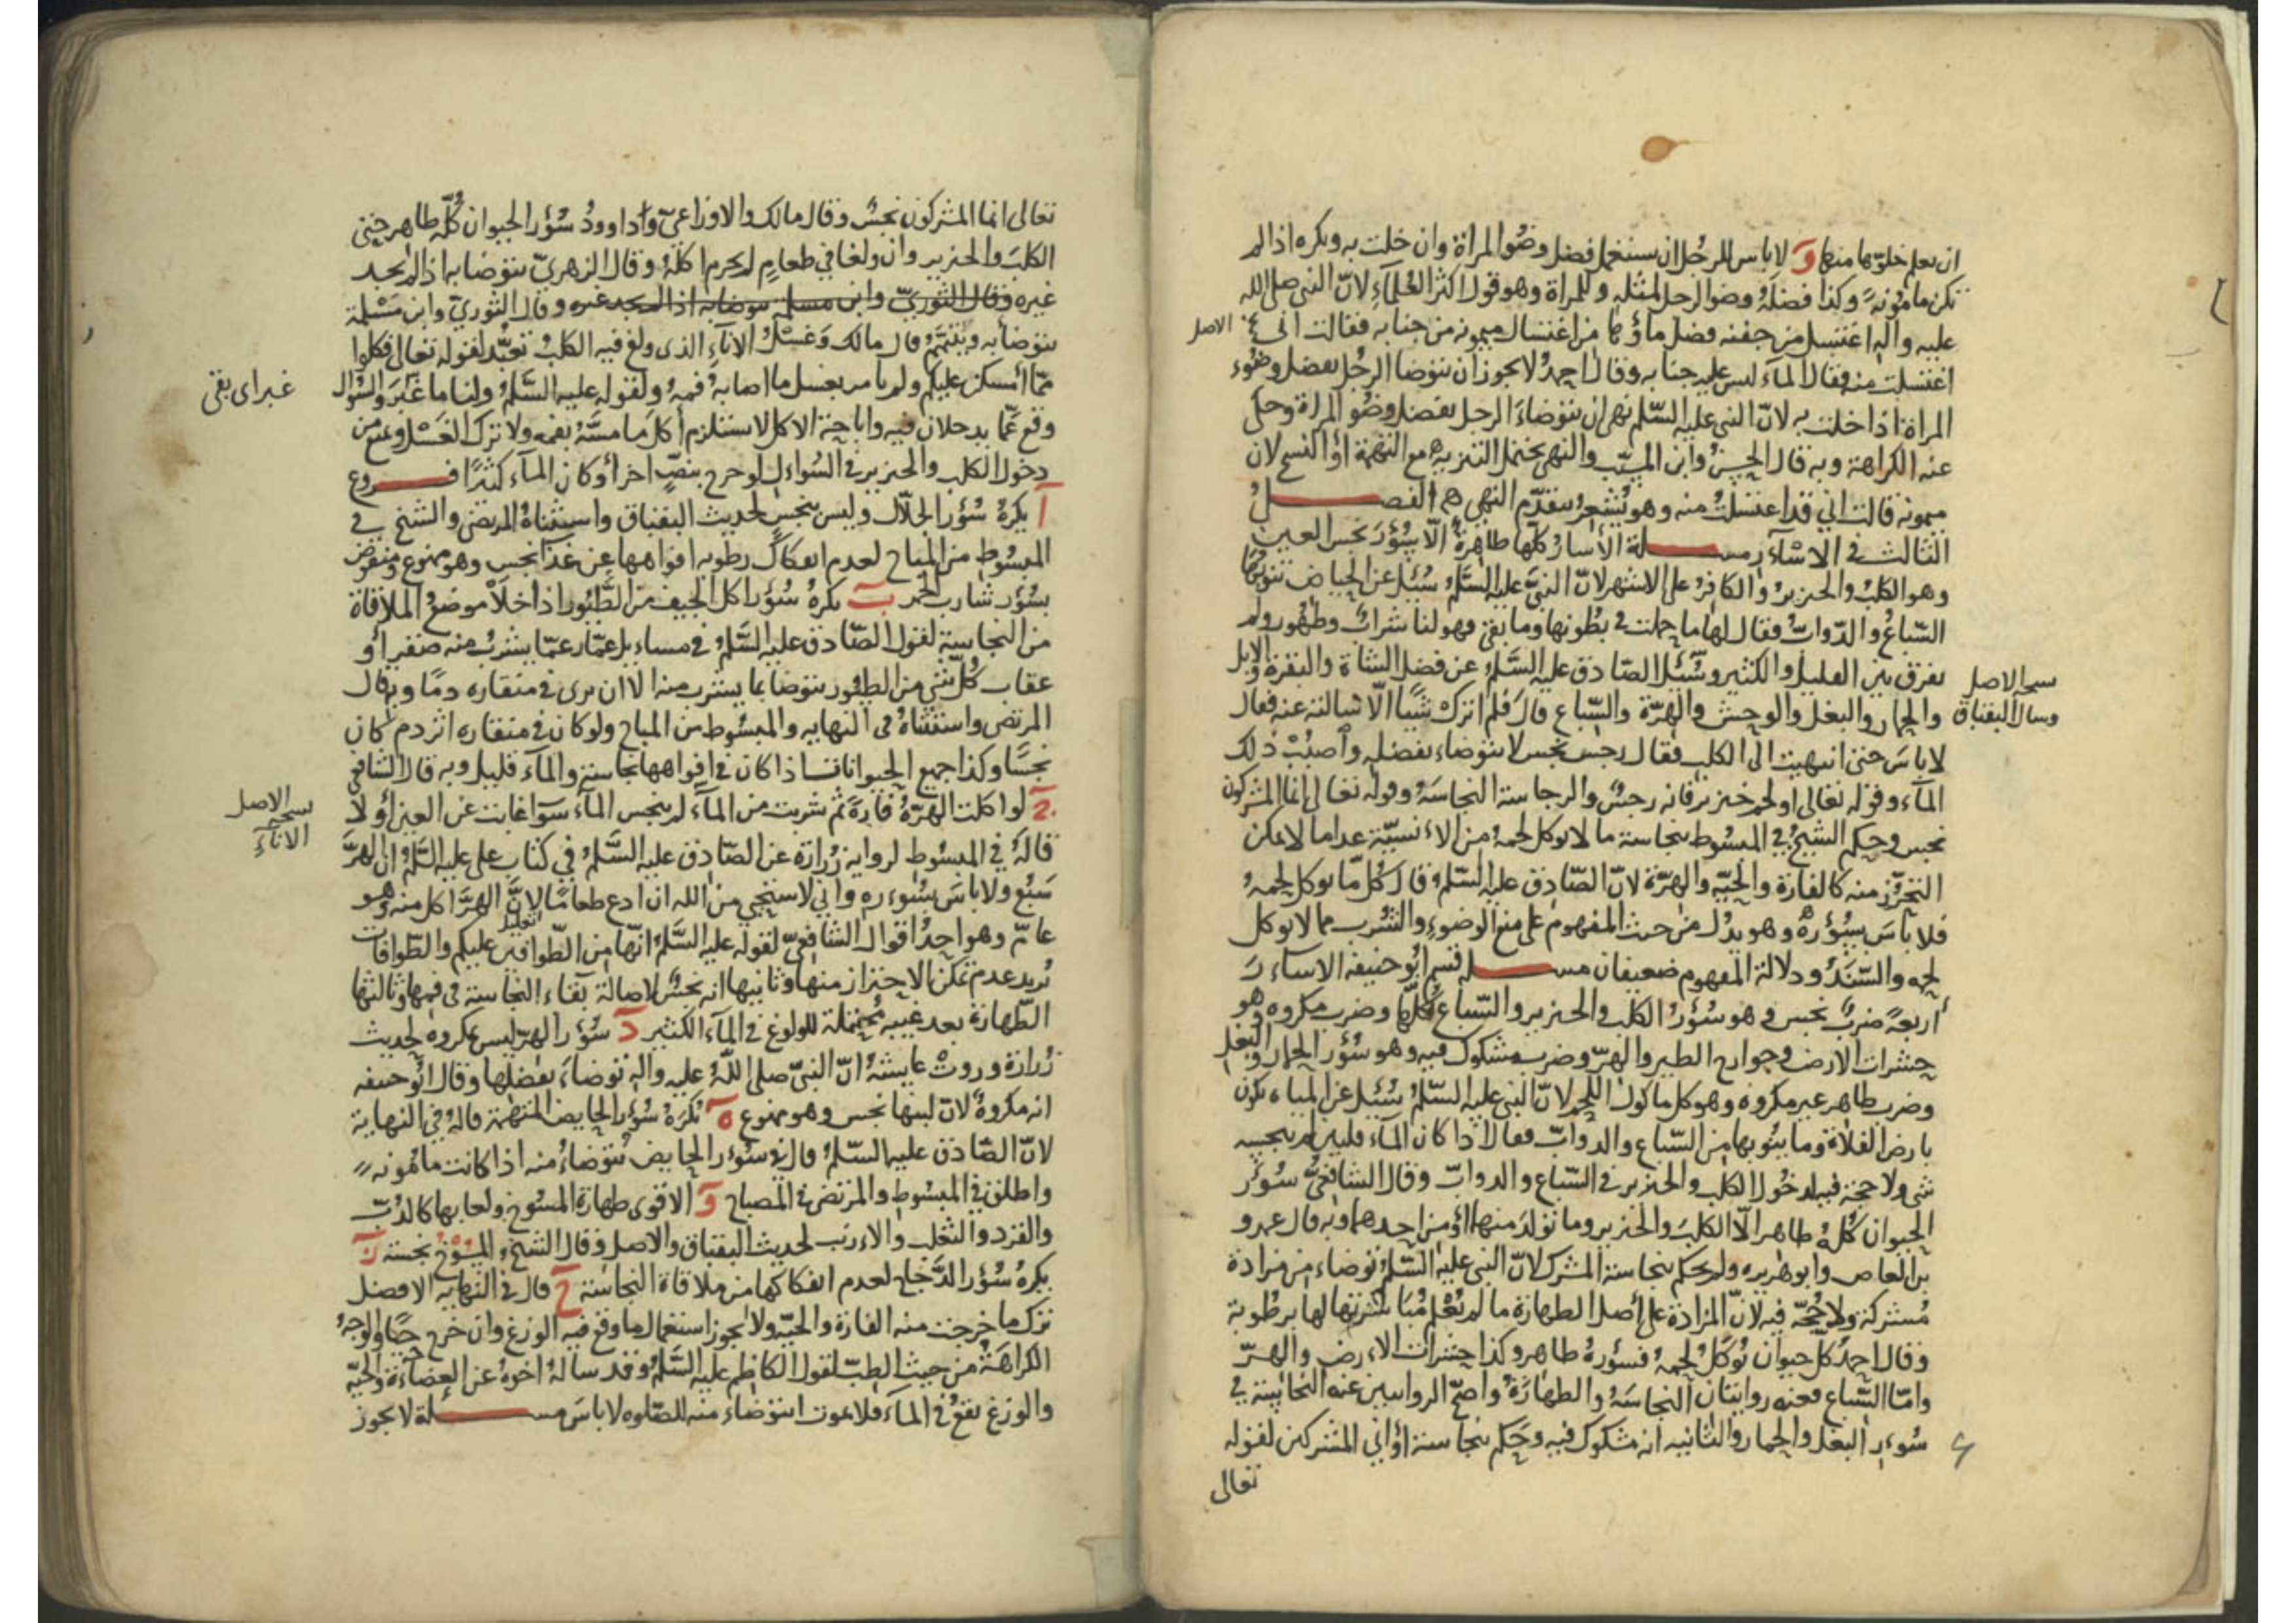 ان يعلم خلوّها منها وَ لا باس للرجُل ان يستعمل فضل وضُو المراة وان خلت به ويكره اذا لم
تكن مامونه وكذا فضلَةُ وضو الرجل لمثله وللمراة وهو قول اكثر العُلَمآءِ لانّ النبى صلى الله
عليه واله اغتسل من جفنه فضل ماؤها من اغتسال ميمونه من جنابه فقالت انى
الاصل
اغتسلت منه فقال المآء ليس عليه جنابه وقال احمدُ لا يجوز ان يتوضا الرجُل بفضل وضُوء
المراة اذا خلت به لانّ النبى عليه السّلم نهى ان يتوضاءَ الرجل بفضل وضُو المراة وحكى
عنه الكراهة وبه قال الحسنُ وابن المسيّب والنهى يحتمل التنزيه مع التهمة او النسخ لان
ميمونه قالت اني قد اغتسلتُ منه وهو يُشعِرُ بتقدّم النهى الفصل
الثالث فى الاسْآر مسلة الأسارُ كلّها طاهِرةٌ الّا سُؤرَ نجس العين
وهو الكلبُ والخنزيرُ والكافِرُ على الاشهر لانّ النبيَّ عليه السَّلمُ سُئل عن الحياض تنوبُها
السّباعُ والدّوابُّ فقال لها ما حملت في بُطونها وما بقى فهو لنا شرابٌ وطَهُور ولم
يفرق بين القليل والكثير وسُئل الصّادق عليه السَّلمُ عن فضل الشاة والبقرة والابل
نسخه الاصل
والحمار والبغل والوحش والهِرّة والسّباع قال فلم اترك شيًا الّا سالته عنه فقال
وسال البقباق
لا باسَ حتى انتهيت الى الكلب فقال رجس نجس لا يتوضاء بفضله واصبُبْ ذلك
المآء وقوله تعالى او لحم خنزير فانه رجسٌ والرجاسة النجاسَةُ وقوله تعالى انما المشركون
نجس وحكم الشيخُ في المبسُوط بنجاسة ما لا يوكل لحمهُ من الانسيّة عدا ما لا يمكن
التحرّز منه كالفارة والحيّه والهِرّة لانّ الصّادق عليه السّلمُ قال كلّ ما يوكل لحمهُ
فلا باسَ بسُؤرهُ وهو يدُل من حيث المفهوم على منع الوضوءِ والشُرب مما لا يوكل
لحمه والسّنَدُ ودلالة المفهوم ضعيفان مسلة قسم ابُو حنيفه الاساءرَ
أربعةً ضربٌ نجس وهو سُؤرُ الكلب والخنزير والسّباع كُلّها وضرب مكروه وهو
حشرات الارض وجوارح الطير والهرّ وضرب مشكوك فيه وهو سُؤر الحمار والبغل
وضرب طاهر غير مكروه وهو كل ماكول اللحم لانّ النبي عليه السّلمُ سُئل عن المياه يكون
بارض الفلاة وما ينُوبها من السّباع والدوابّ فقال اذا كان المآء قلتين لم ينجسه
شي ولا حجة فيه لدخُول الكلب والخنزير فى السّباع والدوابّ وقال الشافعيُّ سُؤر
الحيوان كُلّهُ طاهر الّا الكلبَ والخنزير وما تولدَ منهما او من احدهما وبه قال عمرو
بن العاص وابو هريره ولم يحكم بنجاسة المشرك لانّ النبي عليه السّلمُ توضاء من مزادة
مُشركة ولا حُجّة فيه لانّ المزادة على أصل الطهارة ما لم تُعْلم مُباشرتها لها برطُوبة
وقال احمدُ كلّ حيوان يُوكلُ لحمهُ فسؤرهُ طاهر وكذا حشراتُ الارض والهِرّ
وامّا السّباع فعنه روايتان النجاسَةُ والطهارَةُ واصحّ الروايتين عنه النجاسة في
سُوءر البغل والحمار والثانيه انه مشكوك فيه وحَكم بنجاسة اوَاني المشركين لقوله
تعالى
تعالى انما المشركون نجسٌ وقال مالك والاوزاعىّ وداوودُ سُؤر الحيوان كُلّه طاهر حتى
الكلبَ والخنزير وان ولغا في طعامٍ لم يحرم اكلهُ وقال الزهريّ يتوضا به اذا لم يجد
غيره وقال الثوريّ وابن مسلمه يتوضا به اذا لم يجد غيره وقال الثوريّ وابن مَسْلمة
يتوضا به ويتيمّمُ قال مالك وَغَسْلُ الانآءِ الذى ولغ فيه الكلبُ تعبّد لقوله تعالى فكلوا
ممّا أمسكن عليكم ولم يامر بغسل ما اصابهُ فمهُ ولقوله عليه السَّلمُ ولنا ما غَبَرَ والسُؤال
غبر اى بقى
وقع عمّا يدخلان فيه واباحة الاكل لا يستلزم أكل ما مسّهُ بفمه ولا ترك الغَسْل ونمنع من
دخول الكلب والخنزير فى السُؤال لو خرج بنصٍّ اخر أو كان المآء كثيرًا فروع
آ يكرهُ سُؤر الجلّال وليس بنجس لحديث البقباق واستثناهُ المرتضى والشيخ في
المبسُوط من المباح لعدم انفكاكِ رطوبه افواهها عن غذآء نجس وهو ممنوع ومنقوض
بسُؤر شارب الخمر بَ يكرهُ سُؤر اكل الجيف من الطُيُور اذا خلا موضعُ الملاقاة
من النجاسة لقول الصّادق عليه السَّلمُ في مساءيل عمّار عمّا يشربُ منه صقر أو
عقاب كُلّ شيءٍ من الطيُور يتوضا بما يشرب منه الا ان يرى في منقاره دمًا وبه قال
المرتضى واستثناهُ فى النهايه والمبسُوط من المباح ولو كان فى منقاره اثر دم كان
نجسًا وكذا جميع الحيوانات اذا كان في افواهها نجاسة والمآء قليل وبه قال الشافعي
جَ لو اكلت الهِرّةُ فارةً ثمّ شربت من المآء لم ينجس المآء سوَآ غابت عن العين أو لا
نسخه الاصل
الانآءِ
قالهُ في المبسُوط لرواية زُرارة عن الصّادق عليه السَّلمُ في كتاب على عليه السَّلمُ ان الهرّ
سَبُع ولا باسَ بسُوءره واني لاستحيي من الله ان ادع طعامًا لانّ الهِرّ اكل منه وهو
تعليل
عامّ وهو احدُ اقوال الشافعىّ لقوله عليه السَّلمُ انّها من الطّوافين عليكم والطّوافات
يُريد عدم تمكن الاحتراز منها وثانيها انه نجسٌ لاصالة بقاء النجاسة فى فمها وثالثها
الطّهارة بعد غيبه مُحتملة للولوغ في المآء الكثير دَ سُؤر الهرّ ليس بمكروه لحديث
زُرارة وروتْ عايشَهُ انّ النبيّ صلى اللهُ عليه واله توضاءَ بفضلها وقال ابُو حنيفه
انه مكروهٌ لانّ لبنها نجس وهو ممنوع هَ يكرَهُ سُؤر الحايض المتّهمة قالهُ في النهاية
لانّ الصّادق عليه السّلمُ قال في سُؤر الحايض يتوضاءُ منه اذا كانت مامُونه
واطلق في المبسُوط والمرتضى في المصباح وَ الاقوى طهارة المسُوخ ولعابها كالدُبّ
والقرد والثعلب والارنب لحديث البقباق والاصل وقال الشيخ المسُوخ نجسة زَ
يكرهُ سُؤر الدَّجاج لعدم انفكاكها من ملاقاة النجاسة حَ قال في النهايه الافضل
ترك ما خرجت منه الفارة والحيّه ولا يجوز استعمال ما وقع فيه الوزغ وان خرج حيًّا والوجهُ
الكراهَةُ من حيث الطبّ لقول الكاظم عليه السَّلمُ وقد سالهُ اخوهُ عن العضاءة والحيّه
والوزغ يقعُ في المآء فلا يموت ايتوضاء منه للصّلوه لا باسَ مسئلة لا يجوز